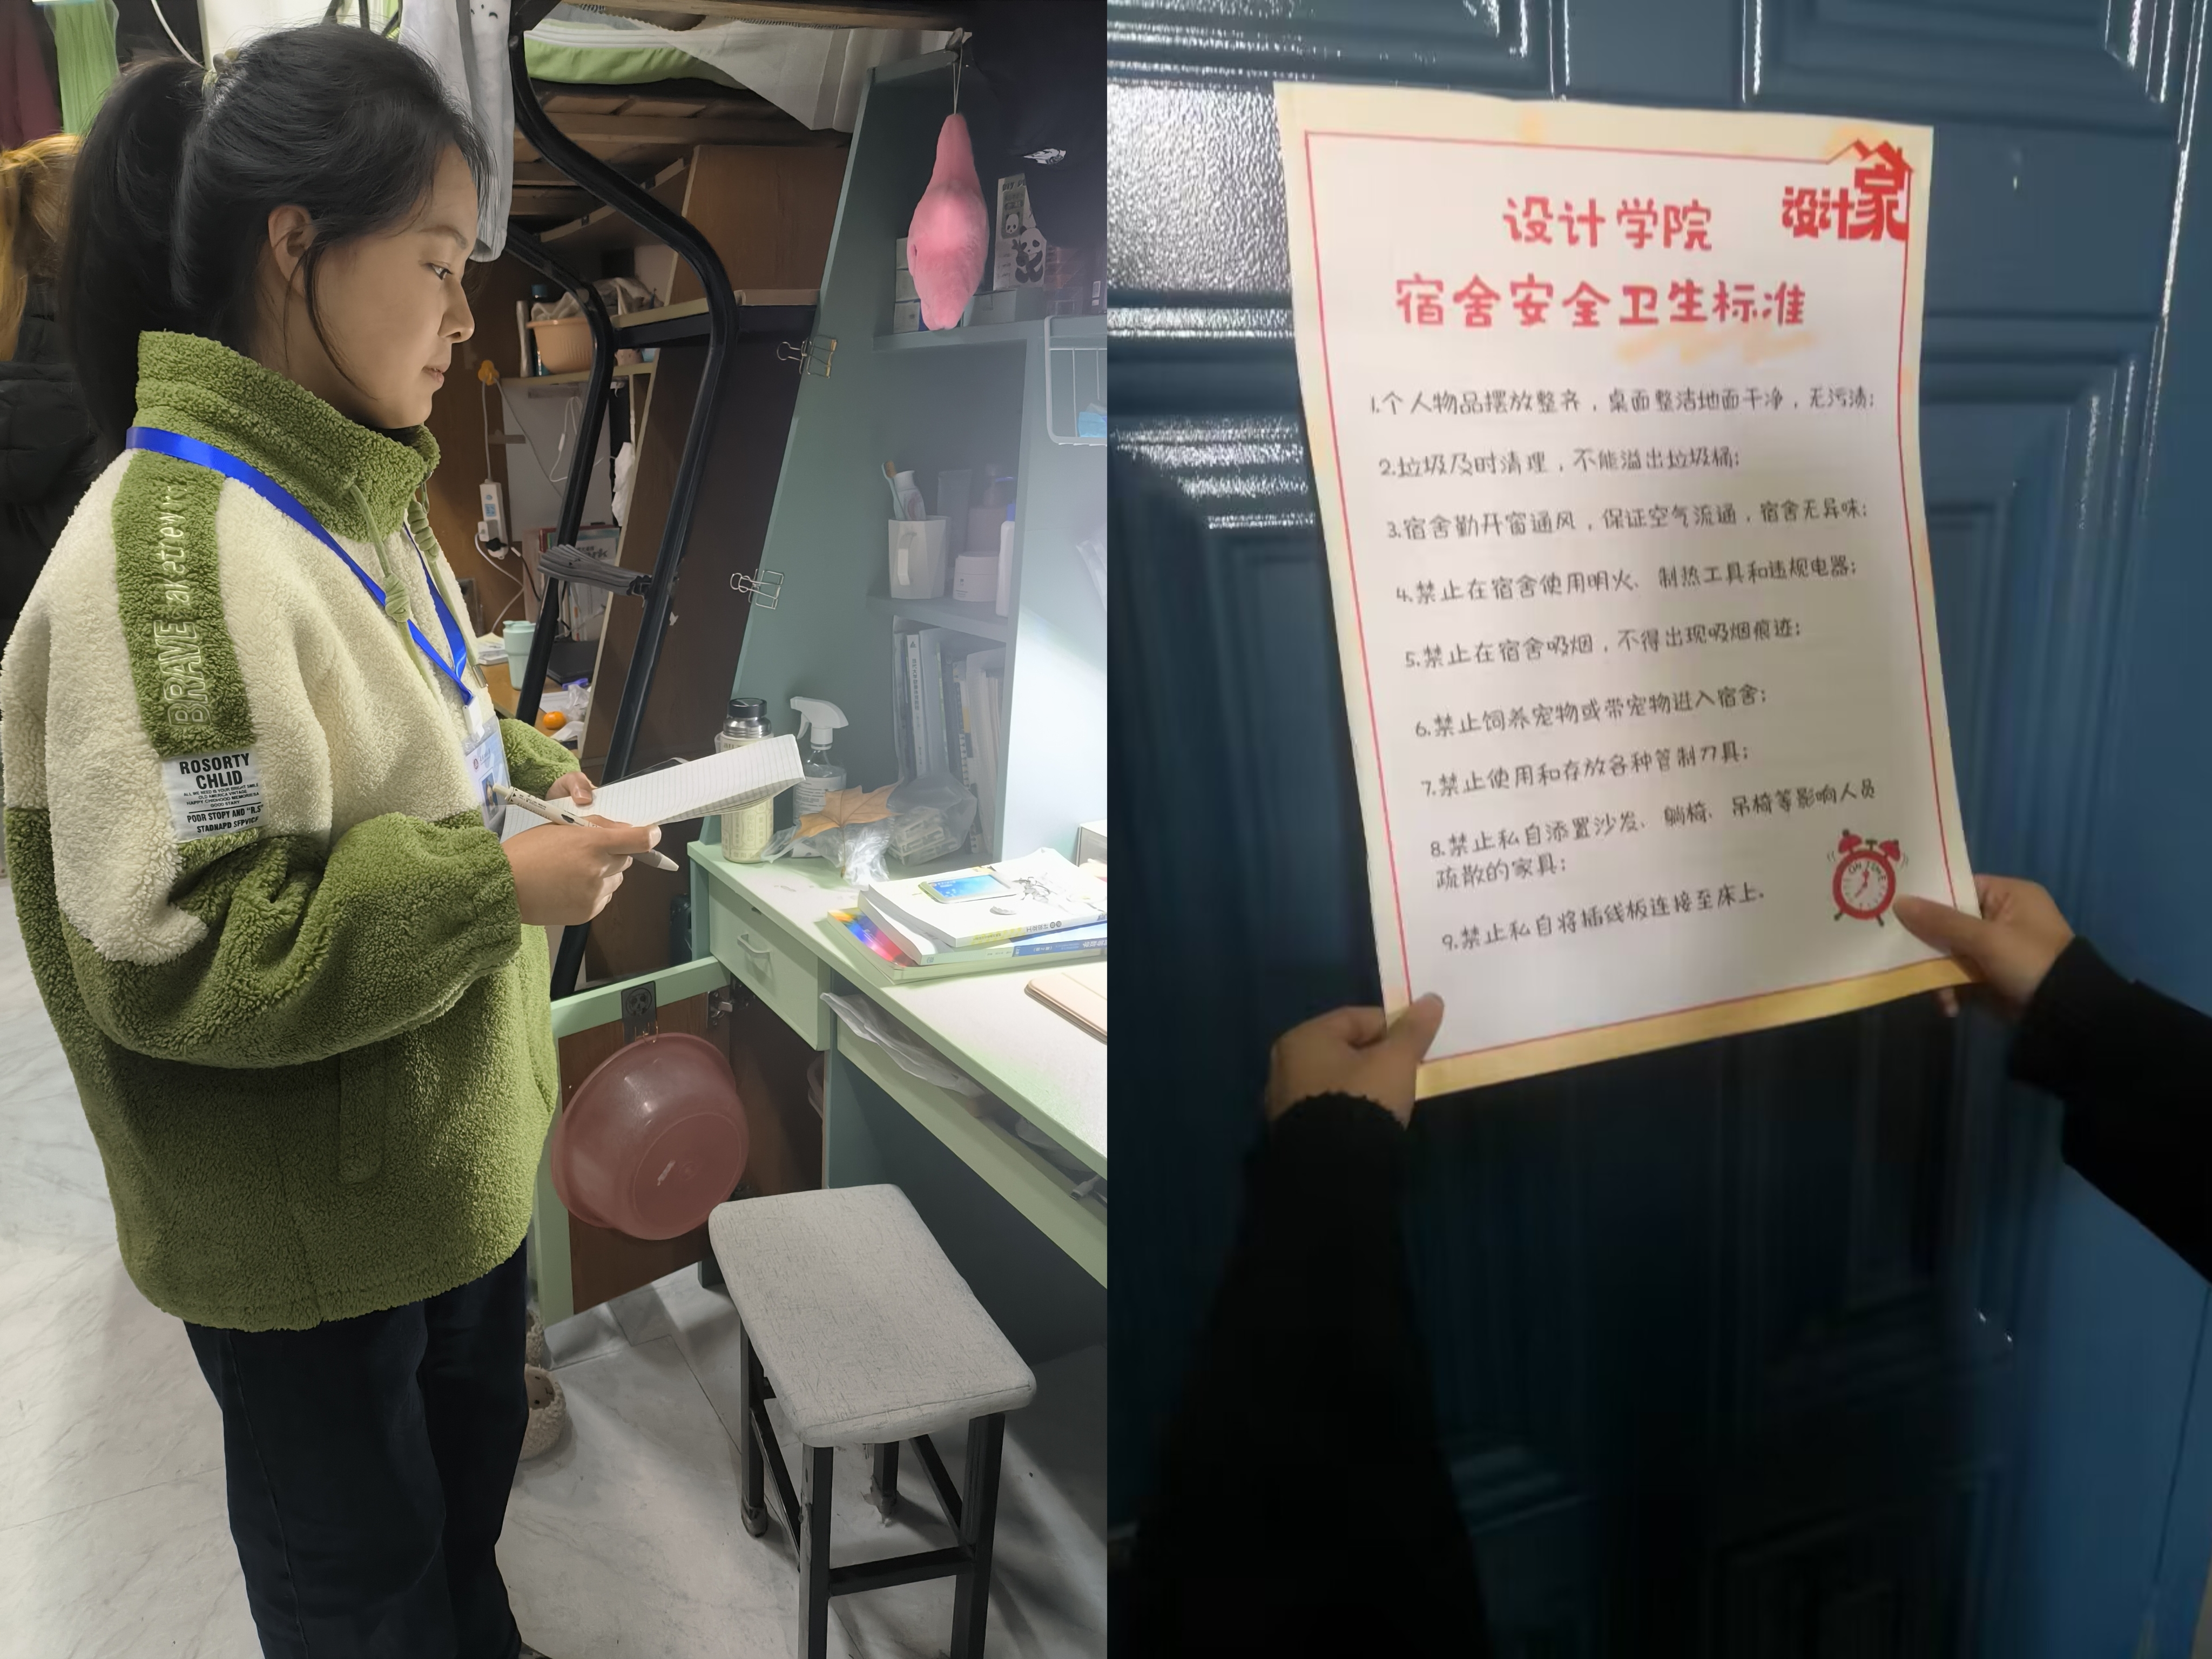 BRAVE aketenrty
ROSORTY
CHLID
ALL WE NEED IS YOUR BRIGHT SMILE
OLD AMERICA VINTAGE
HAPPY CHIDHOOD MEMORIES
GOOD START
PODR STOPY AND "R.S"
STADNAPD SFPVICF
设计学院
设计家
宿舍安全卫生标准
1.个人物品摆放整齐，桌面整洁地面干净，无污渍;
2.垃圾及时清理，不能溢出垃圾桶;
3.宿舍勤开窗通风，保证空气流通，宿舍无异味;
4.禁止在宿舍使用明火、制热工具和违规电器;
5.禁止在宿舍吸烟，不得出现吸烟痕迹;
6.禁止饲养宠物或带宠物进入宿舍;
7.禁止使用和存放各种管制刀具;
8.禁止私自添置沙发、躺椅、吊椅等影响人员
疏散的家具;
9.禁止私自将插线板连接至床上.
ON TIME